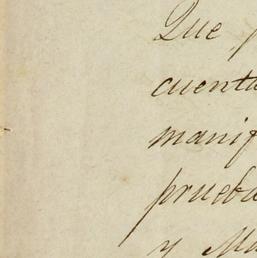 Que
cuenta
manif
prueba
y Ma